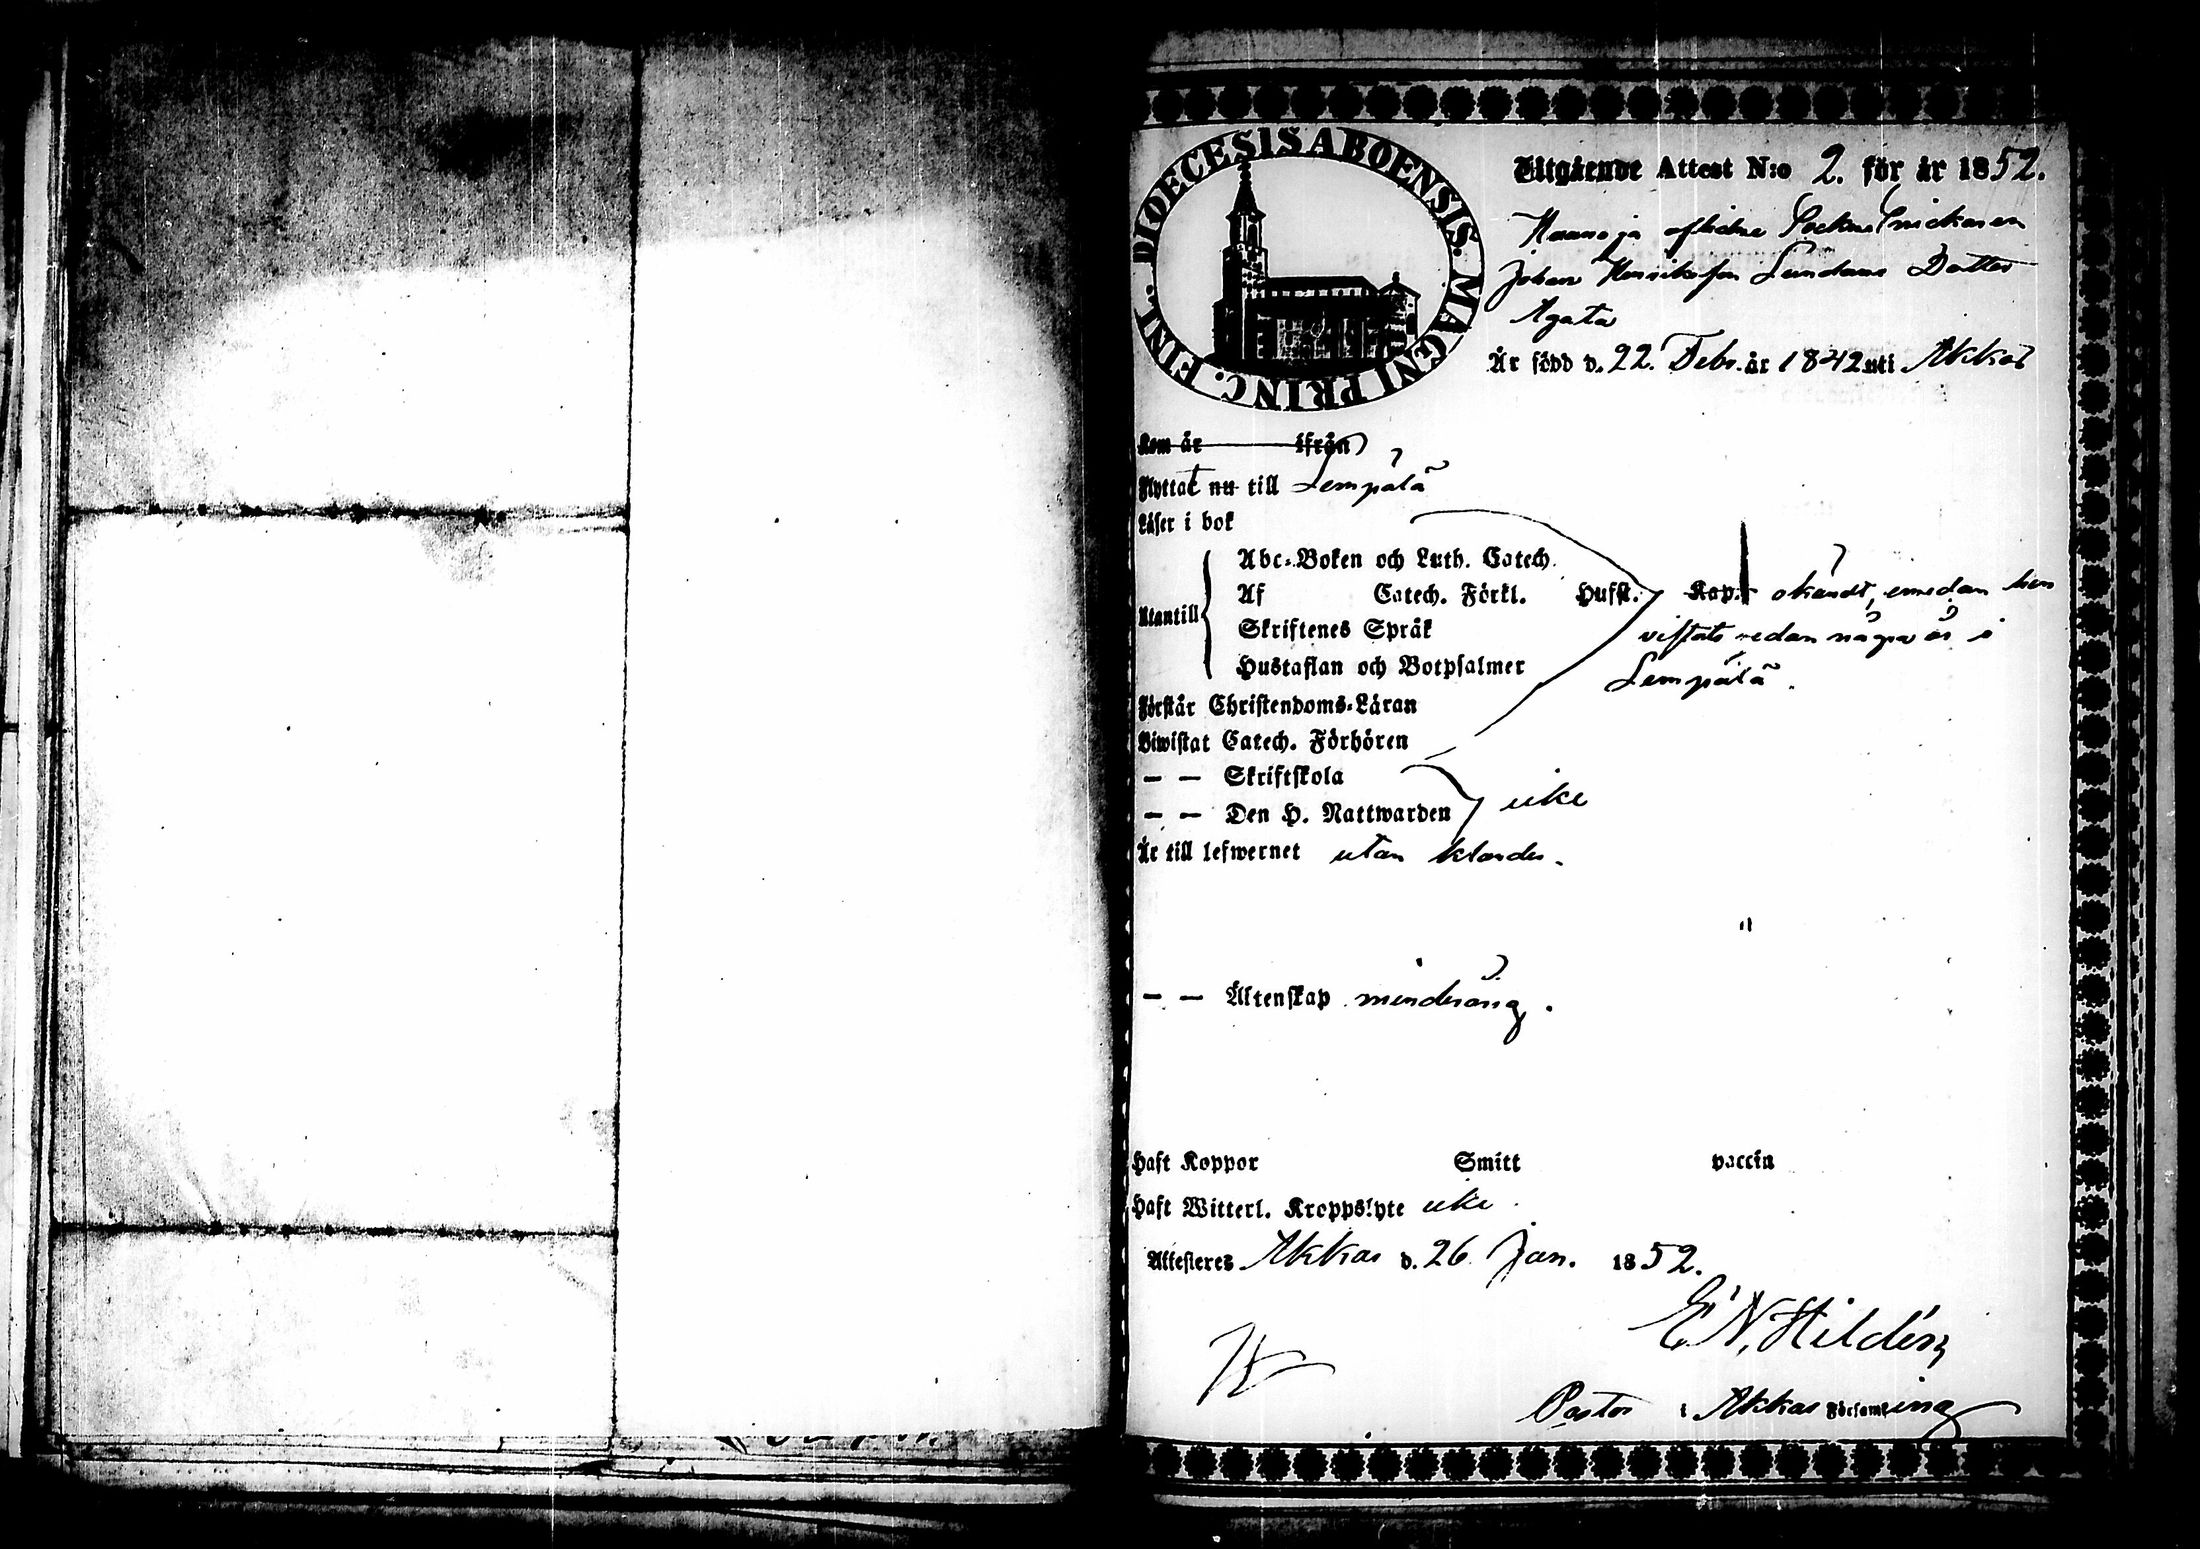 DIOECESIS ABOENSIS. MAGNI PRINC. FINL.
Utgående Attest N:o 2. för år 1852.
aflidne Socken
Johan Henriksson Sundans Dotter
Agata
Är född d. 22. Febr. år 1842 uti Akkas
Kom år ifrån
Flyttat nu till Lempälä
Läser i bok
Abc-Boken och Luth. Catech.
Utantill Af Catech. Förkl. Husst. Kap. okändt, emedan hon
vistats redan några år i
Skriftenes Språk
Lempälä.
Hustaflan och Botpsalmer
Förstår Christendoms-Läran
Biwistat Catech. Förhören
— — Skriftskola
— — Den H. Nattwarden icke
Är till lefwernet utan klander.
— — Äktenskap minderårig.
Haft Koppor Smitt vaccin
Haft Witterl. Kroppslyte icke.
Attesteres Akkas d. 26 Jan. 1852.
E. N. Hildén
Pastor i Akkas Församling